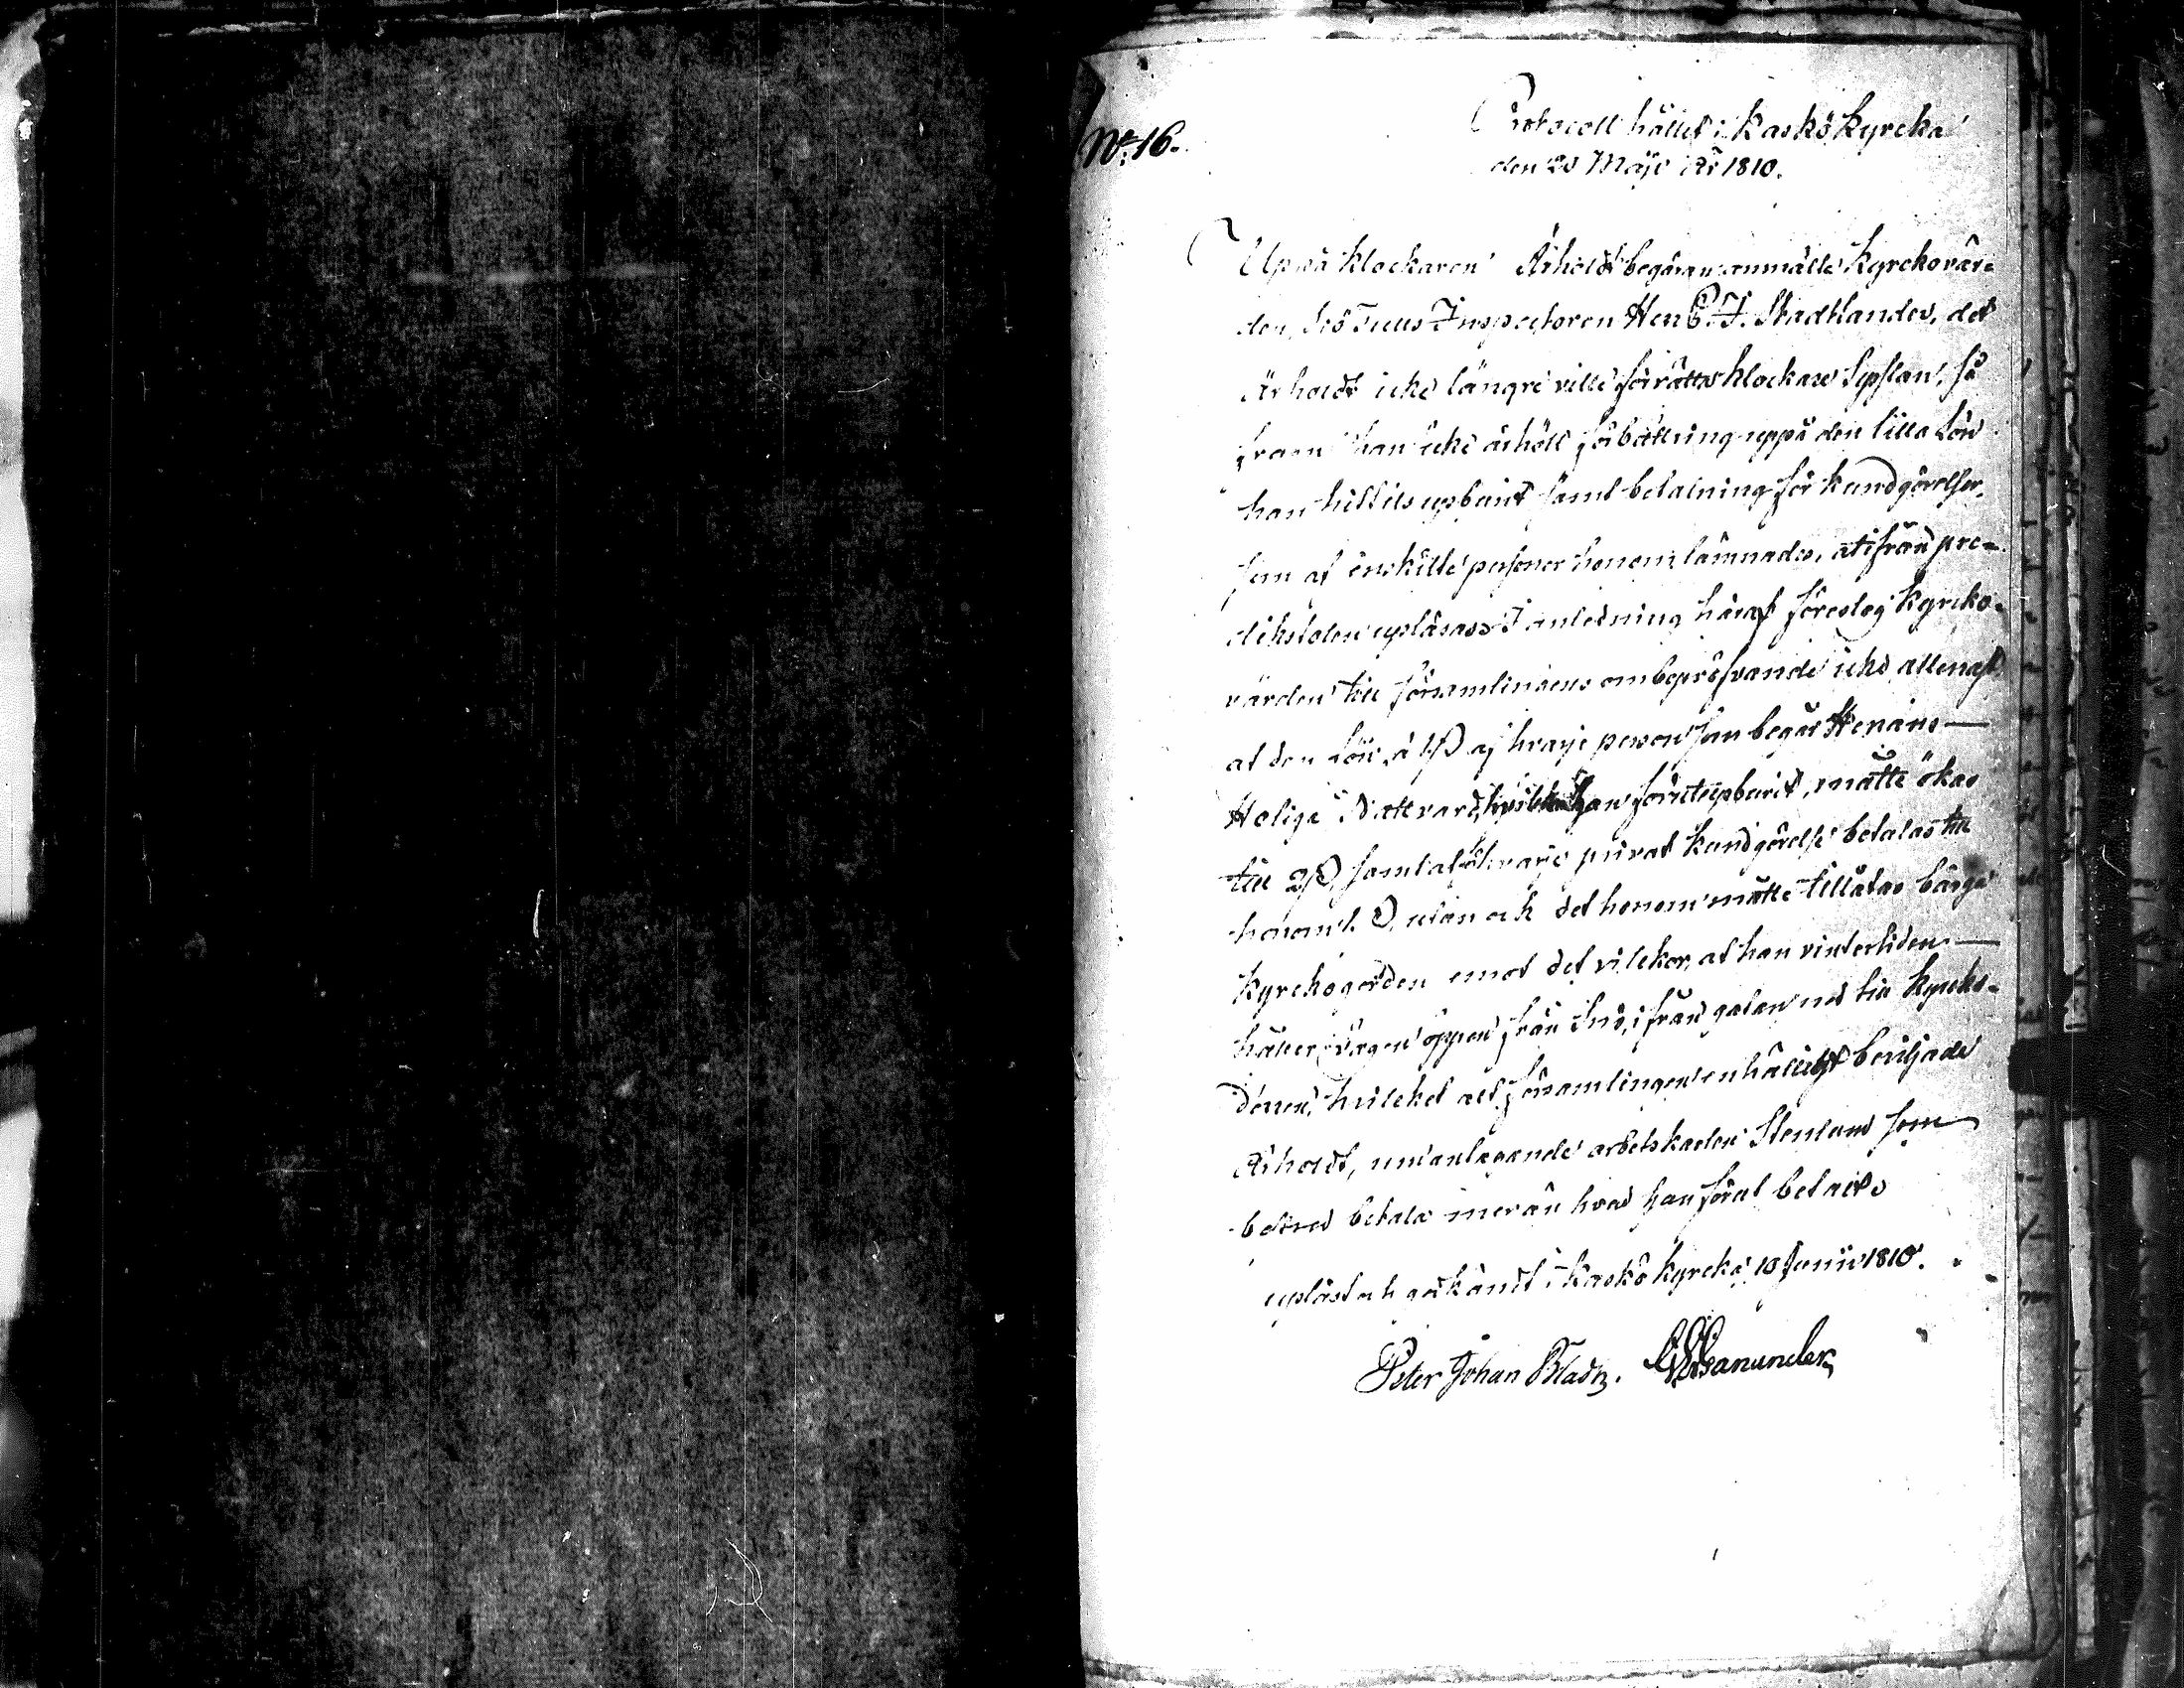 No: 16.
Protocoll hållet i Kaskö Kyrcka
den 20 Maji År 1810.
Uppå klockaren Årholdt begäran anmälte Kyrckovär-
den, Sjö Tulls Inspectoren Herr C. J. Stadtlander, det
Årholdt icke längre ville förrätta klockare Syslan, så
fram han icke ärhölt förbättring uppå den lilla Lön
han hittils upburit samt betalning för kundgörelser,
som af enskilte personer honom lämnades, at ifrån pre-
dikstolen upläsas. I anledning häraf föreslog Kyrcko-
värden till församlingens ombepröfvande icke allenast
at den Lön, à 1 ß af hvarje person som begår Herrans
Heliga Nattvard, hvilken han förut upburit, måtte ökas
till 2 ß, samt at för hvarje privat kundgörelse betalas till
honom utan ock det honom måtte tillåtas bärga
Kyrckogården emot det vilckor, at han vintertiden
håller vägen öppen från Snö, ifrån gatan ned till Kyrcko-
dörren, hvilcket alt församlingen enhälligt beviljade
Årholdt, undantagande arbetskarlen Stenlund som
bestred betala mer än hvad han förut betalt.
upläst och godkändt i Kaskö Kyrcka, 10 Junii 1810.
Peter Johan Bladh.